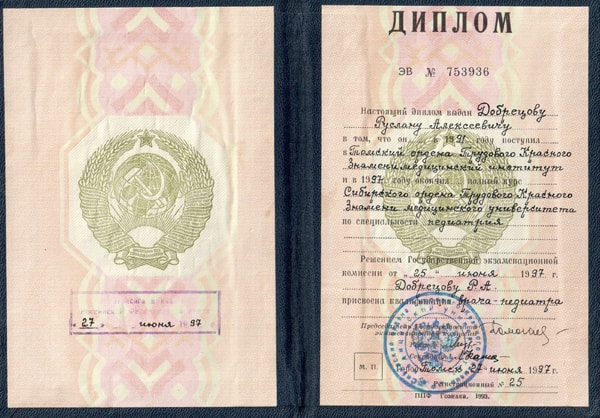 19 97
"27" июня
ДИПЛОМ
ЭВ № 753936
Настоящий диплом выдан Добрецову
Руслану Алексеевичу
в том, что он в 1991 году поступил
в Томский ордена Трудового Красного
Знамени медицинский институт
и в 1997 году окончил полный курс
Сибирского ордена Трудового Красного
Знамени медицинского университета
по специальности педиатрия
Решением Государственной экзаменационной
комиссии от "25" июня 1997 г.
Добрецову Р.А.
присвоена квалификация врача-педиатра
Председатель Государственной
экзаменационной
Ректор
Секретарь
М. П.
Город Томск 27 июня 1997 г.
Регистрационный № 25
ППФ Гознака. 1993.